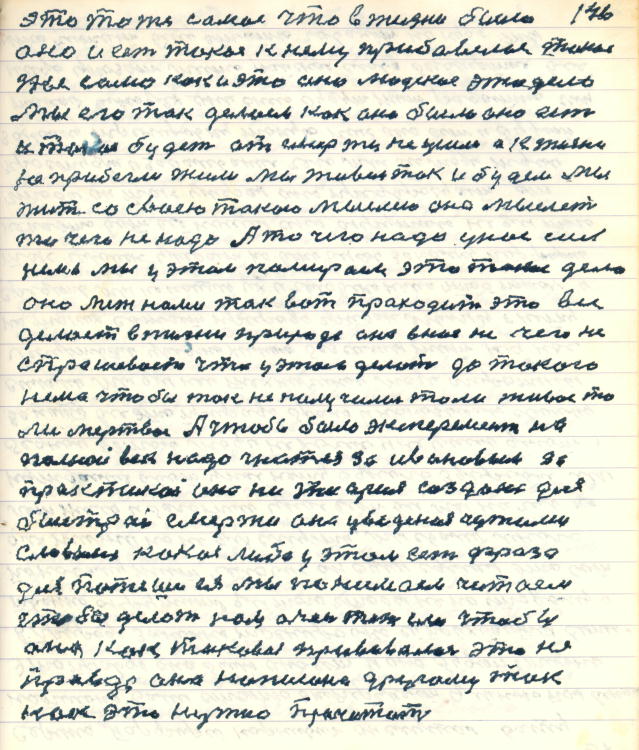 это то же самое что в жизни было 146
оно и есть такое к нему прибавилось такое
же само как и это оно людское это дело
мы его так делаем как оно было оно есть
и такое будет от смерти не ушли а к жизни
не прибегли жили мы живем так и будем мы
жить со своею такою мыслию она мыслет
то чего не надо А то чего надо у нас сил
нема мы у этом помираем это такое дело
оно меж нами так вот проходит это все
делает в жизни природа она в нас не чего не
что у этом делать до такого
нема чтобы так не получилось то ли живое то
ли мертвое А чтобы было эксперемент на
надо гнатся за ивановым за
практикой она ни теория создана для
быстрай смерти она чужими
словами какая либо у этом есть фраза
для мы понимаем читаем
что делать нам о чем чтобы
она как таковая это не
правда она написана другому так
как это нужно прачитать